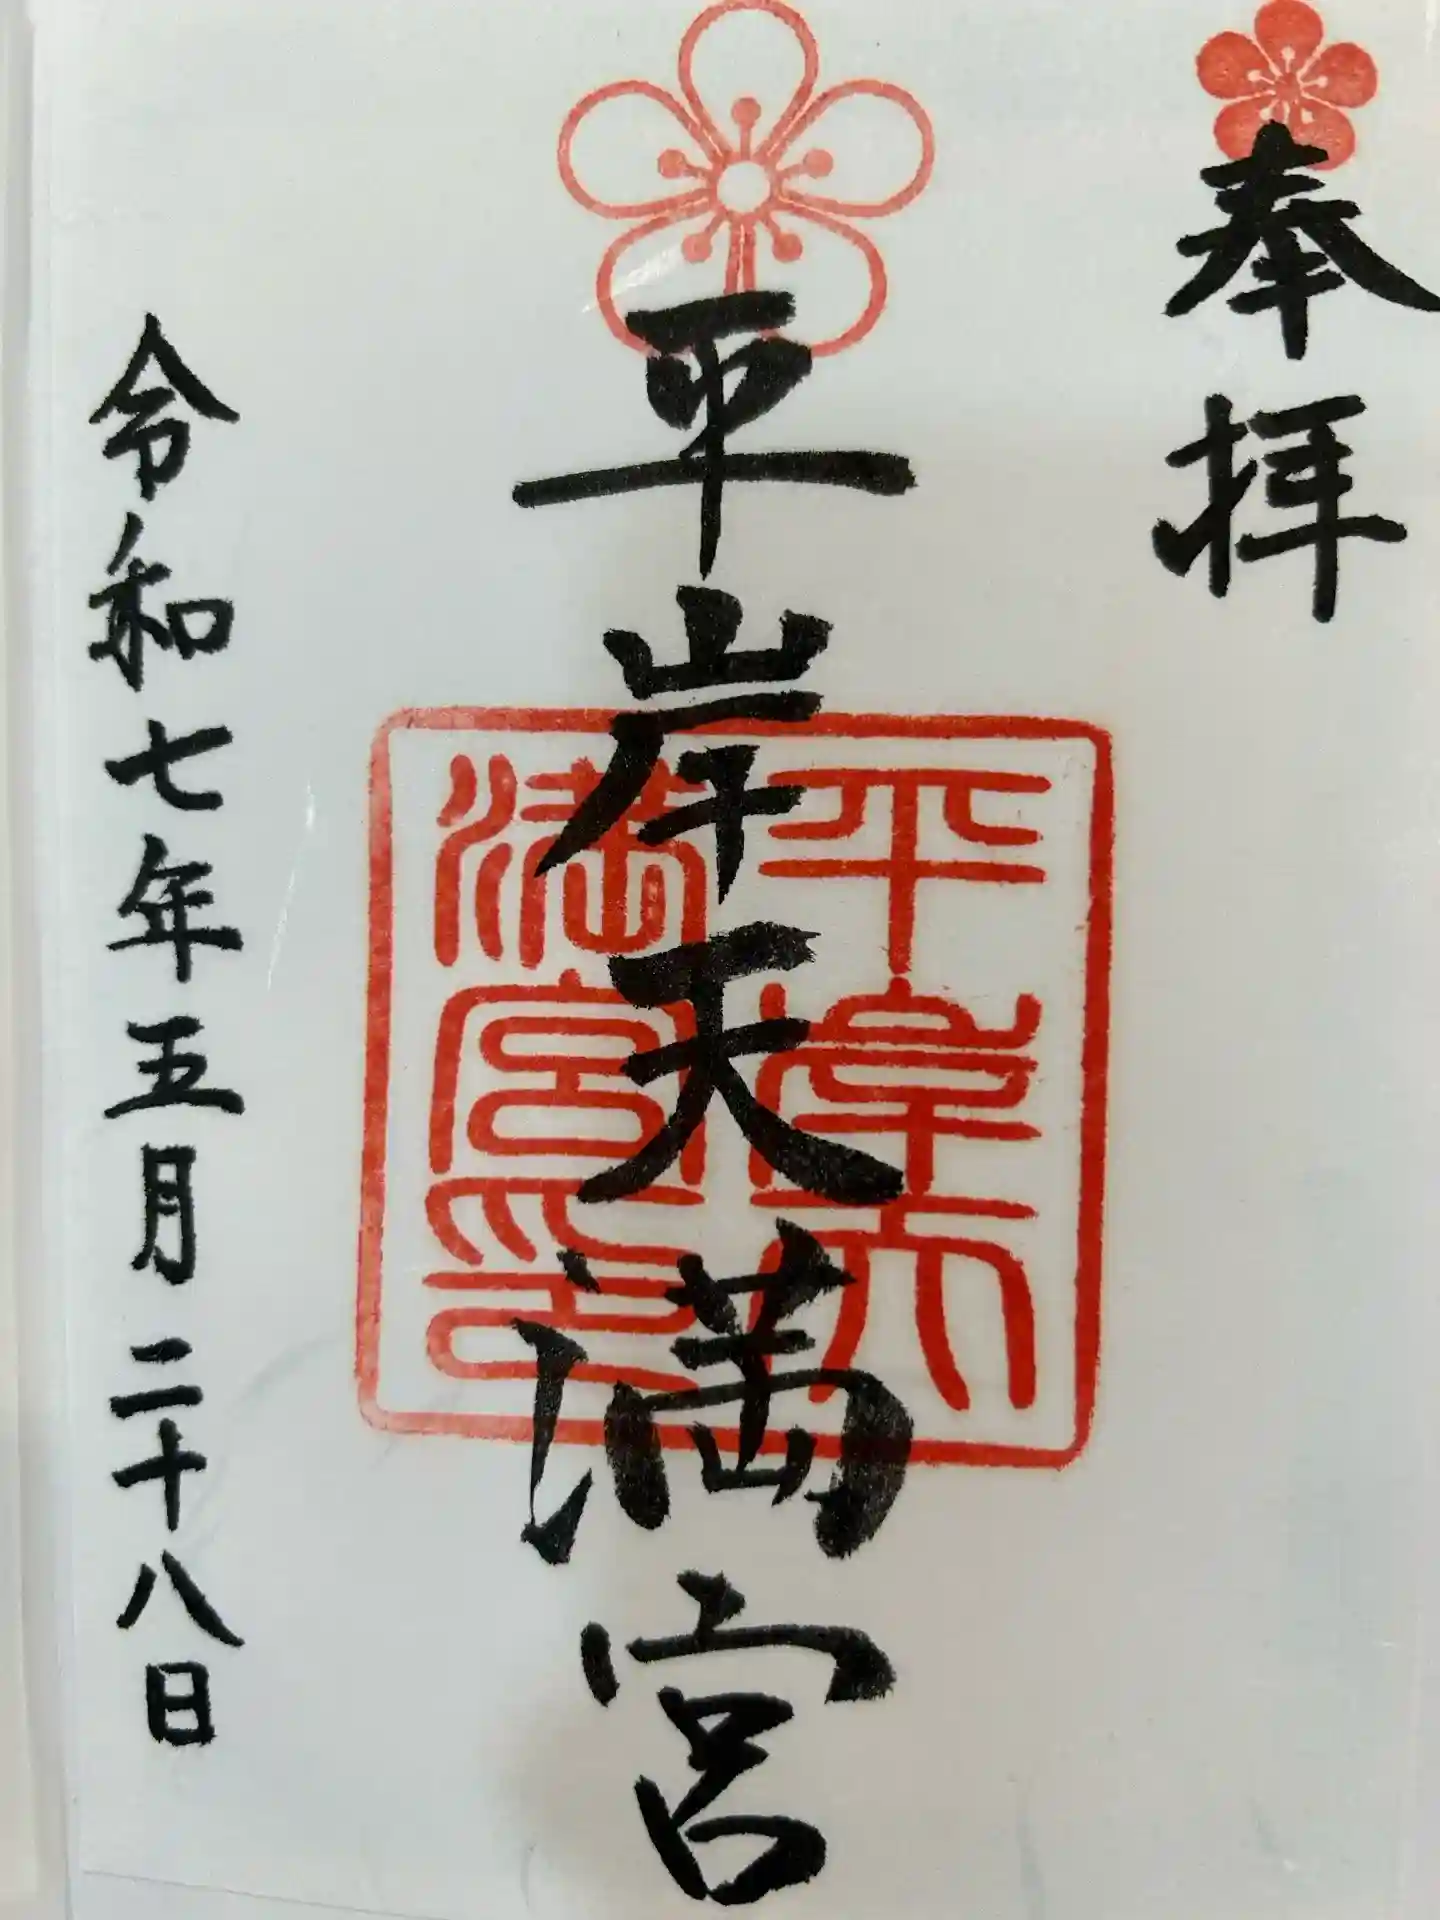 奉拝
平岸天満宮
平岸天
満宮印
令和七年五月二十八日